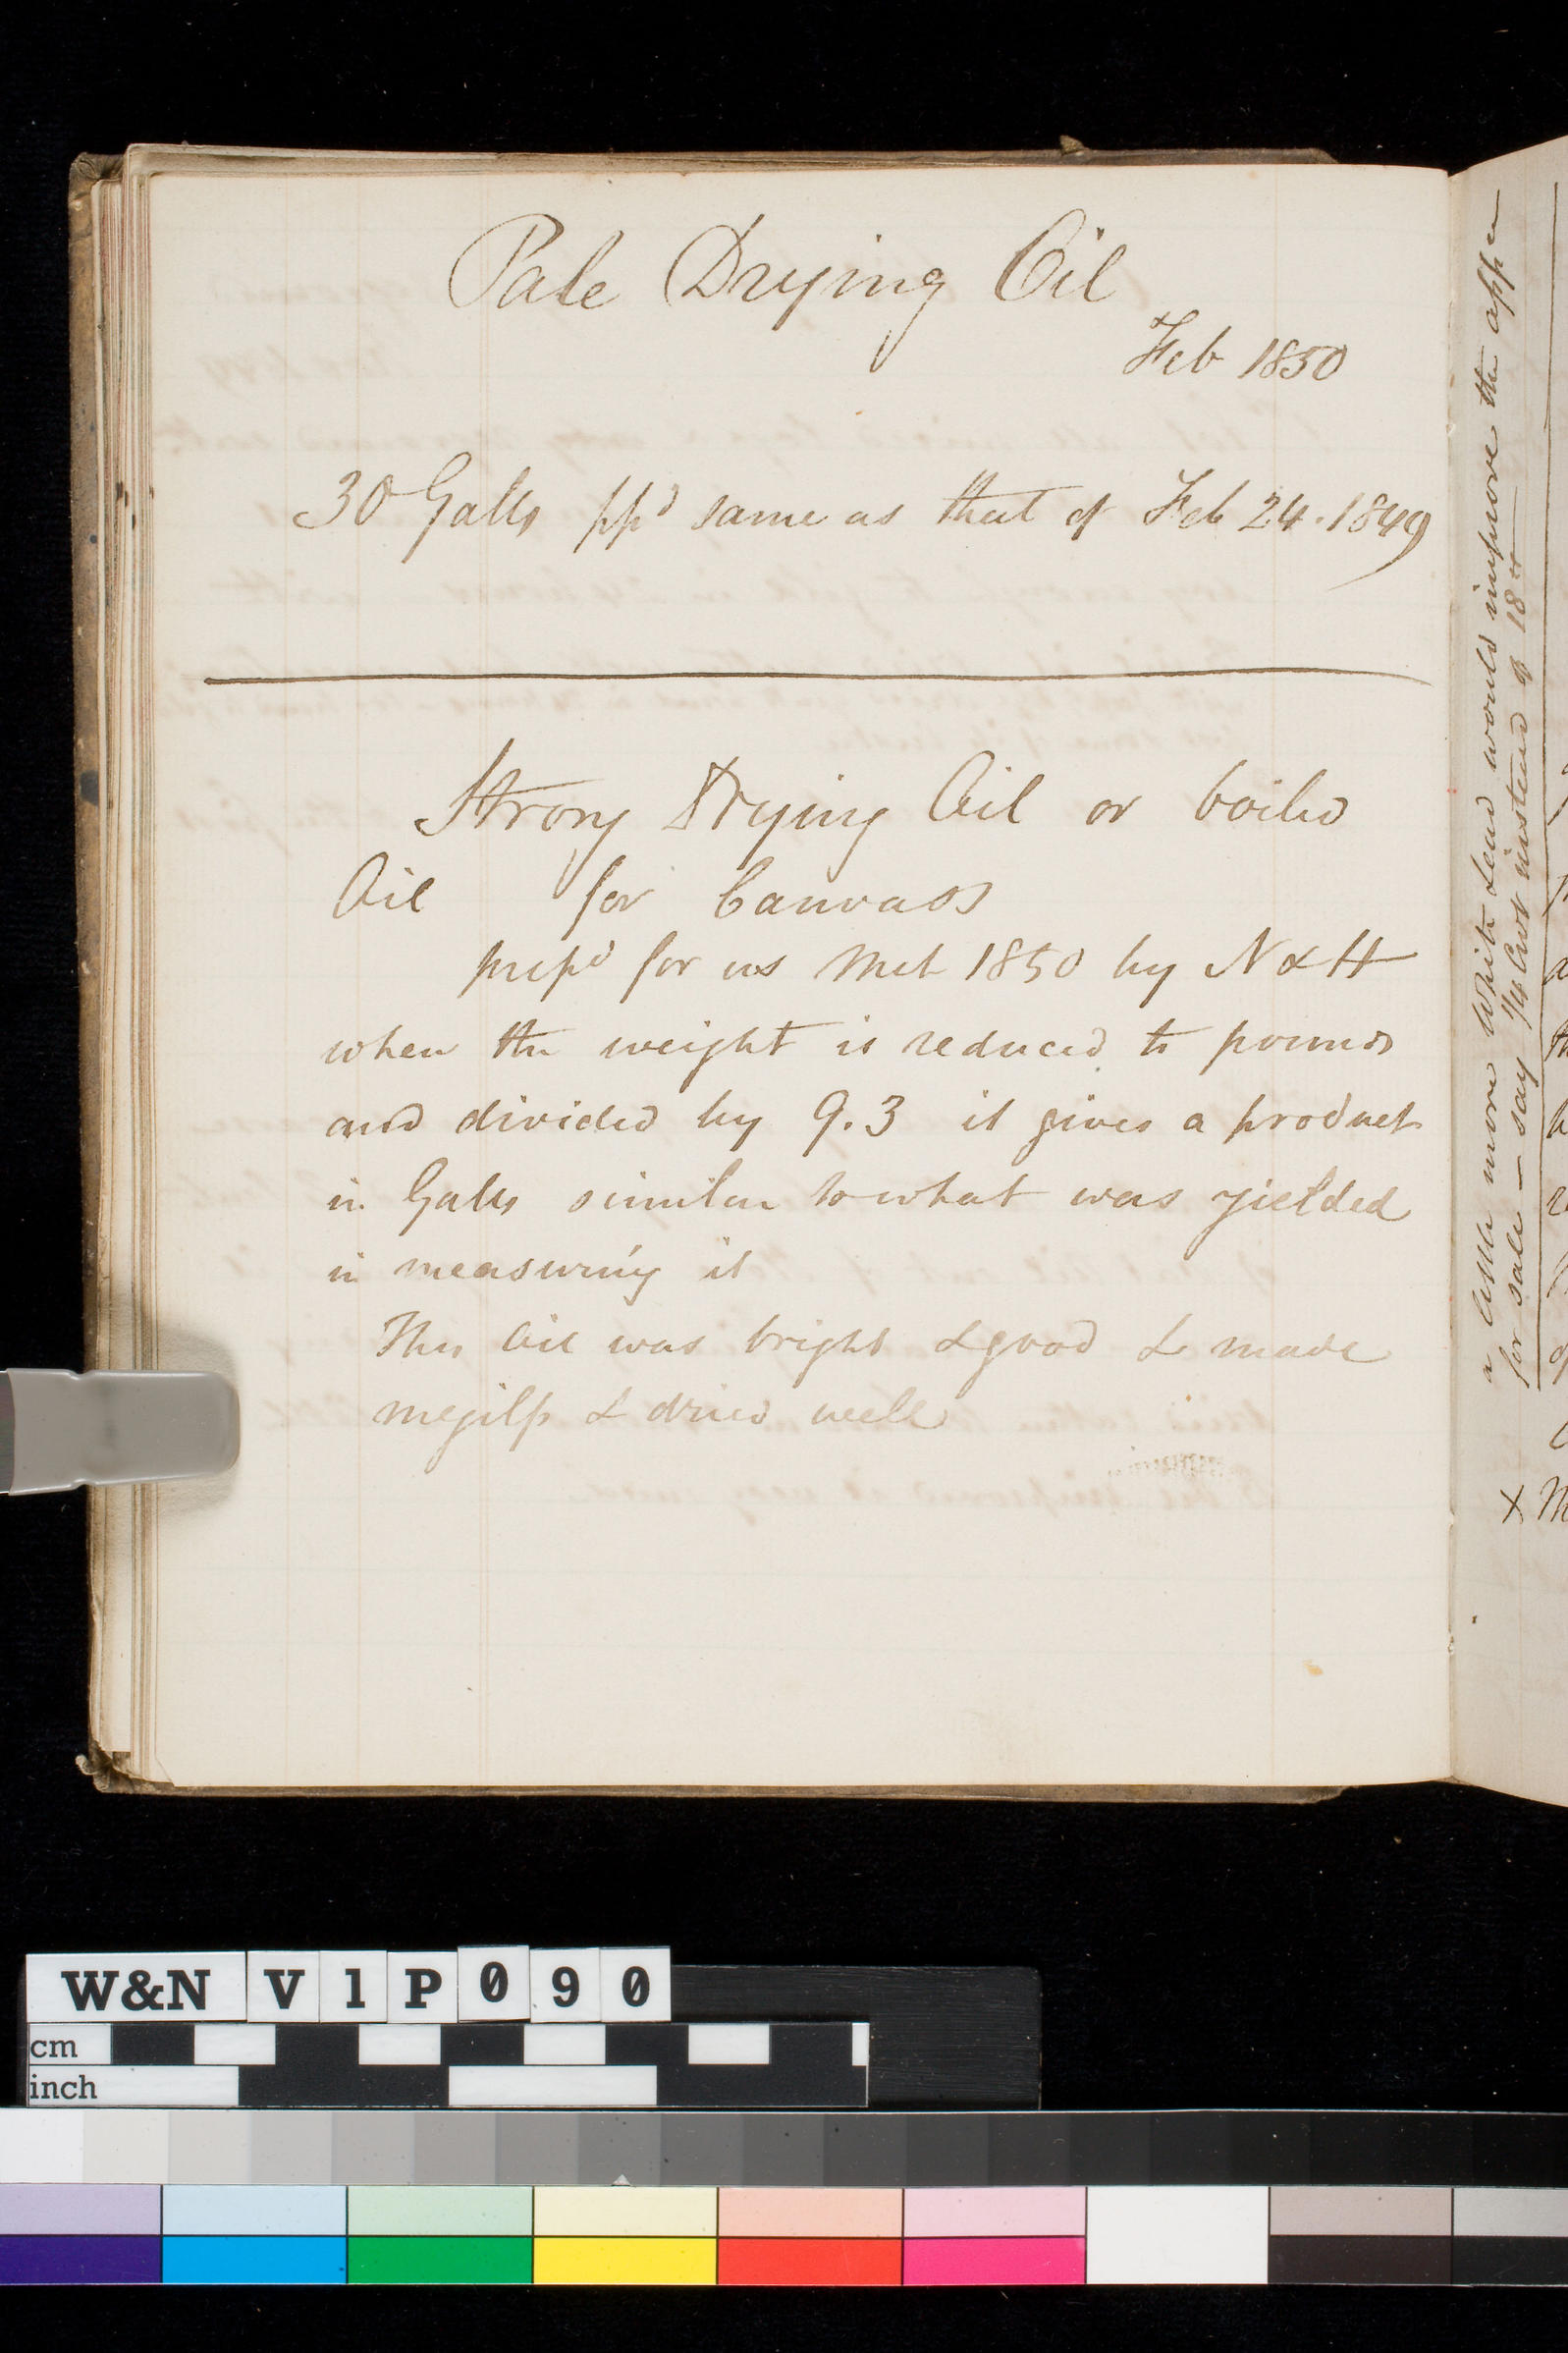 Pale Drying Oil
Feb 1850
30 Galls ppd same as that of Feb 24. 1849
Strong Drying Oil or boiled
Oil for Canvass
prepd for us Mch 1850 by N & H
when the weight is reduced to pounds
and divided by 9.3 it gives a product
in Galls similar to what was yielded
in measuring it
This Oil was bright & good & made
megilp & dried well
a little more White Lead would improve the appea
for sale – say 1/4 Cwt instead of 18 lb
+ M
W&N V1P090
cm
inch